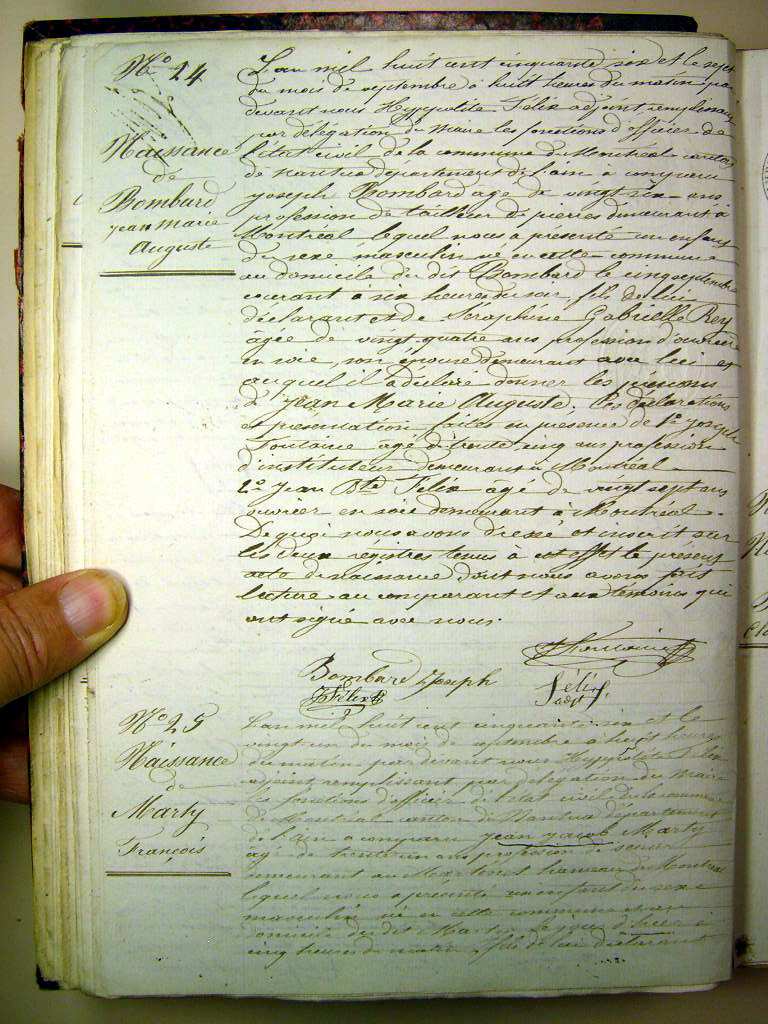 N.° 24
Naissance
de
Bombard
jean Marie
Auguste
L'an mil huit cent cinquante six et le sept
du mois de septembre à huit heures du matin par
devant nous Hyppolite Félix adjoint remplissant
par délégation du Maire les fonctions d'officier de
l'état civil de la commune de Montréal canton
de nantua département de l'ain a comparu
joseph Bombard agé de vingt six ans
profession de tailleur de pierres demeurant à
Montréal lequel nous a présenté un enfant
du sexe masculin né en cette commune
au domicile du dit Bombard le cinq septembre
courant à six heures du soir, fils de lui
déclarant et de Séraphine Gabrielle Rey
âgée de vingt quatre ans profession d'ouvrière
en soie, son épouse demeurant avec lui et
auquel il a déclaré donner les prénoms
d'jean Marie Auguste; les déclarations
et présentation faites en présence de 1° joseph
Fontaine agé de trente cinq ans profession
d'instituteur demeurant à Montréal
2° jean Bte Félix âgé de vingt sept ans
ouvrier en soie demeurant à Montréal.
De quoi nous avons dressé et inscrit sur
les deux registres tenus à cet effet le présent
acte de naissance dont nous avons fait
lecture au comparant et aux témoins qui
ont signé avec nous.
Fontaine
Bombard joseph
Félix
Félix
adjt
N° 25
Naissance
de
Marty
François
L'an mil huit cent cinquante six et le
vingt un du mois de septembre à huit heures
du matin par devant nous Hyppolite Félix
adjoint remplissant par délégation du Maire
les fonctions d'officier de l'état civil de la commune
de Montréal canton de Nantua département
de l'ain a comparu jean jacob Marty
âgé de trente un ans profession de
demeurant au Martinet hameau de Montréal
lequel nous a présenté un enfant du sexe
masculin né en cette commune et au
domicile du dit Marty le jour d'hier à
cinq heures du matin, fils de lui déclarant